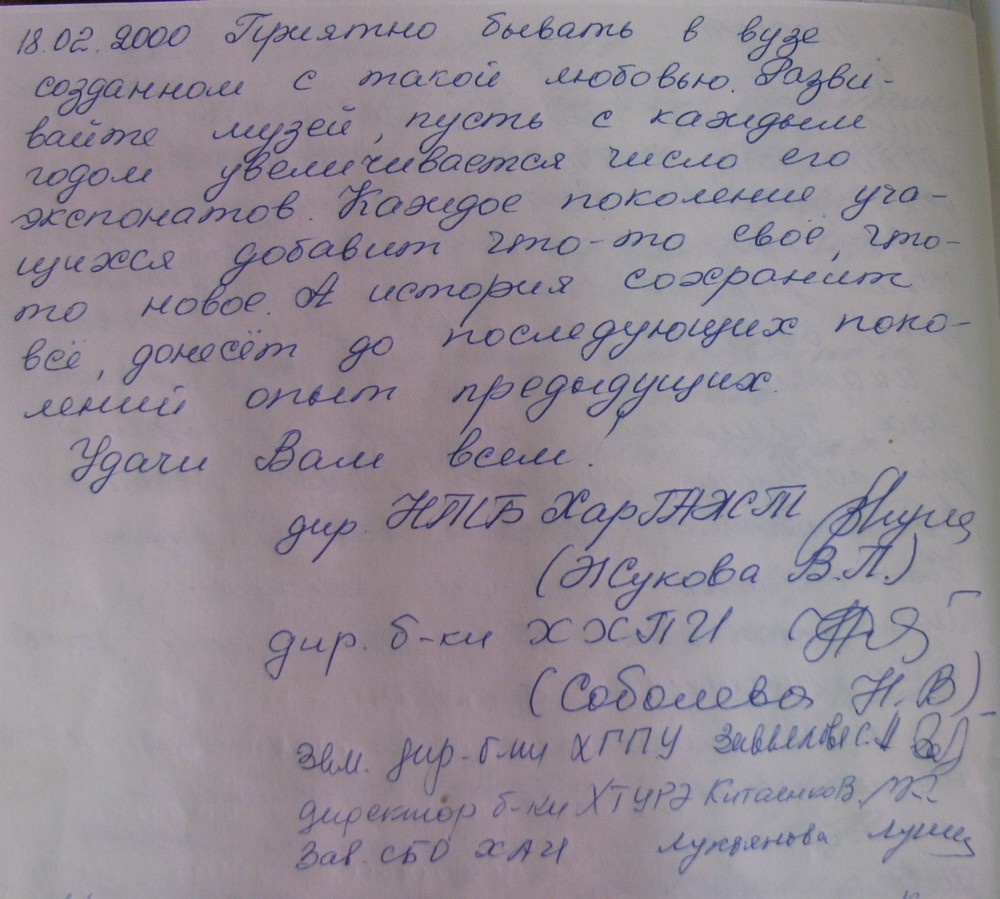 18.02.2000 Приятно бывать в вузе
созданном с такой любовью. Разви-
вайте музей, пусть с каждым
годом увеличивается число его
экспонатов. Каждое поколение уча-
щихся добавит что-то своё, что-
то новое. А история сохранит
всё, донесёт до последующих поко-
лений опыт предыдущих.
Удачи Вам всем.
дир. НТБ ХарГАЖТ
(Жукова В.П.)
дир. б-ки ХХПИ
(Соболева Н.В)
Зам. дир. б-ки ХГПУ
директор б-ки ХТУРЭ
Зав. СБО ХАИ Лукьянова